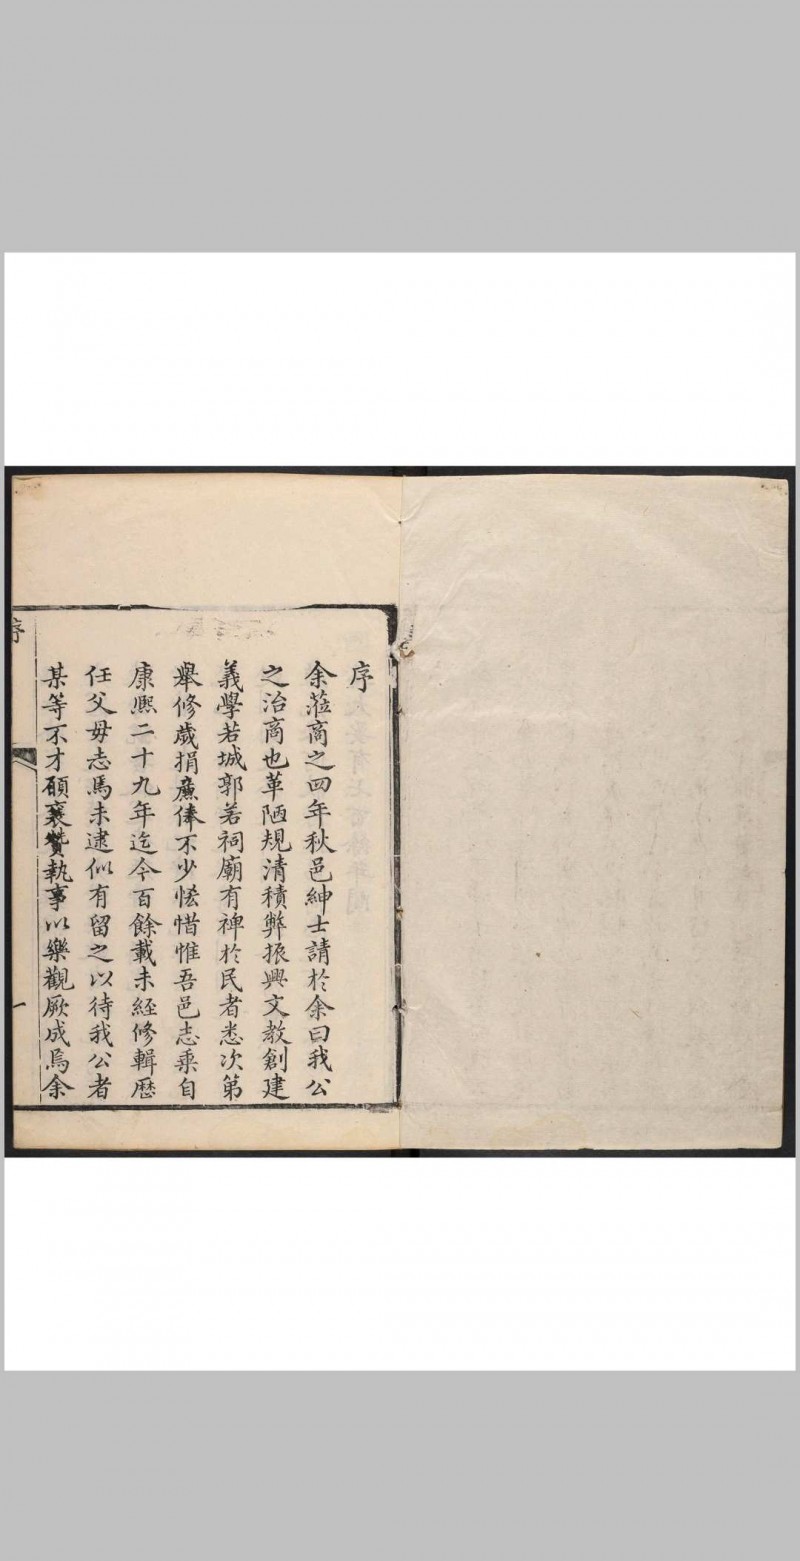 序
余蒞商之四年秋邑紳士請於余曰我公
之治商也革陋規清積弊振興文教創建
義學若城郭若祠廟有裨於民者悉次第
舉修歲捐廉俸不少恡惜惟吾邑志乘自
康熙二十九年迄今百餘載未經修輯歷
任父母志焉未逮似有留之以待我公者
某等不才願襄贊執事以樂觀厥成焉余
序
一